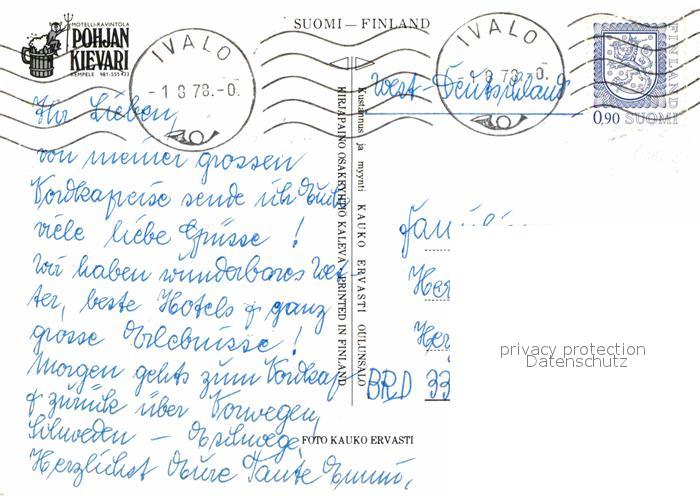 MOTELLI-RAVINTOLA
POHJAN
KIEVARI
KEMPELE 981-555 433
SUOMI — FINLAND
IVALO
-1 8 78.-0.
IVALO
-1 8 78.-0.
FINLAND
0,90 SUOMI
Ihr Lieben,
von meiner grossen
Nordkapreise sende ich Euch
viele liebe Grüsse!
Wir haben wunderbares Wet-
ter, beste Hotels & ganz
grosse Erlebnisse!
Morgen gehts zum Nordkap
& zurück über Norwegen,
Schweden –
Herzlichst Eure Tante
Kustannus ja myynti KAUKO ERVASTI OULUNSALO
KIRJAPAINO OSAKEYHTIÖ KALEVA PRINTED IN FINLAND
FOTO KAUKO ERVASTI
West-Deutschland
BRD 33
privacy protection
Datenschutz